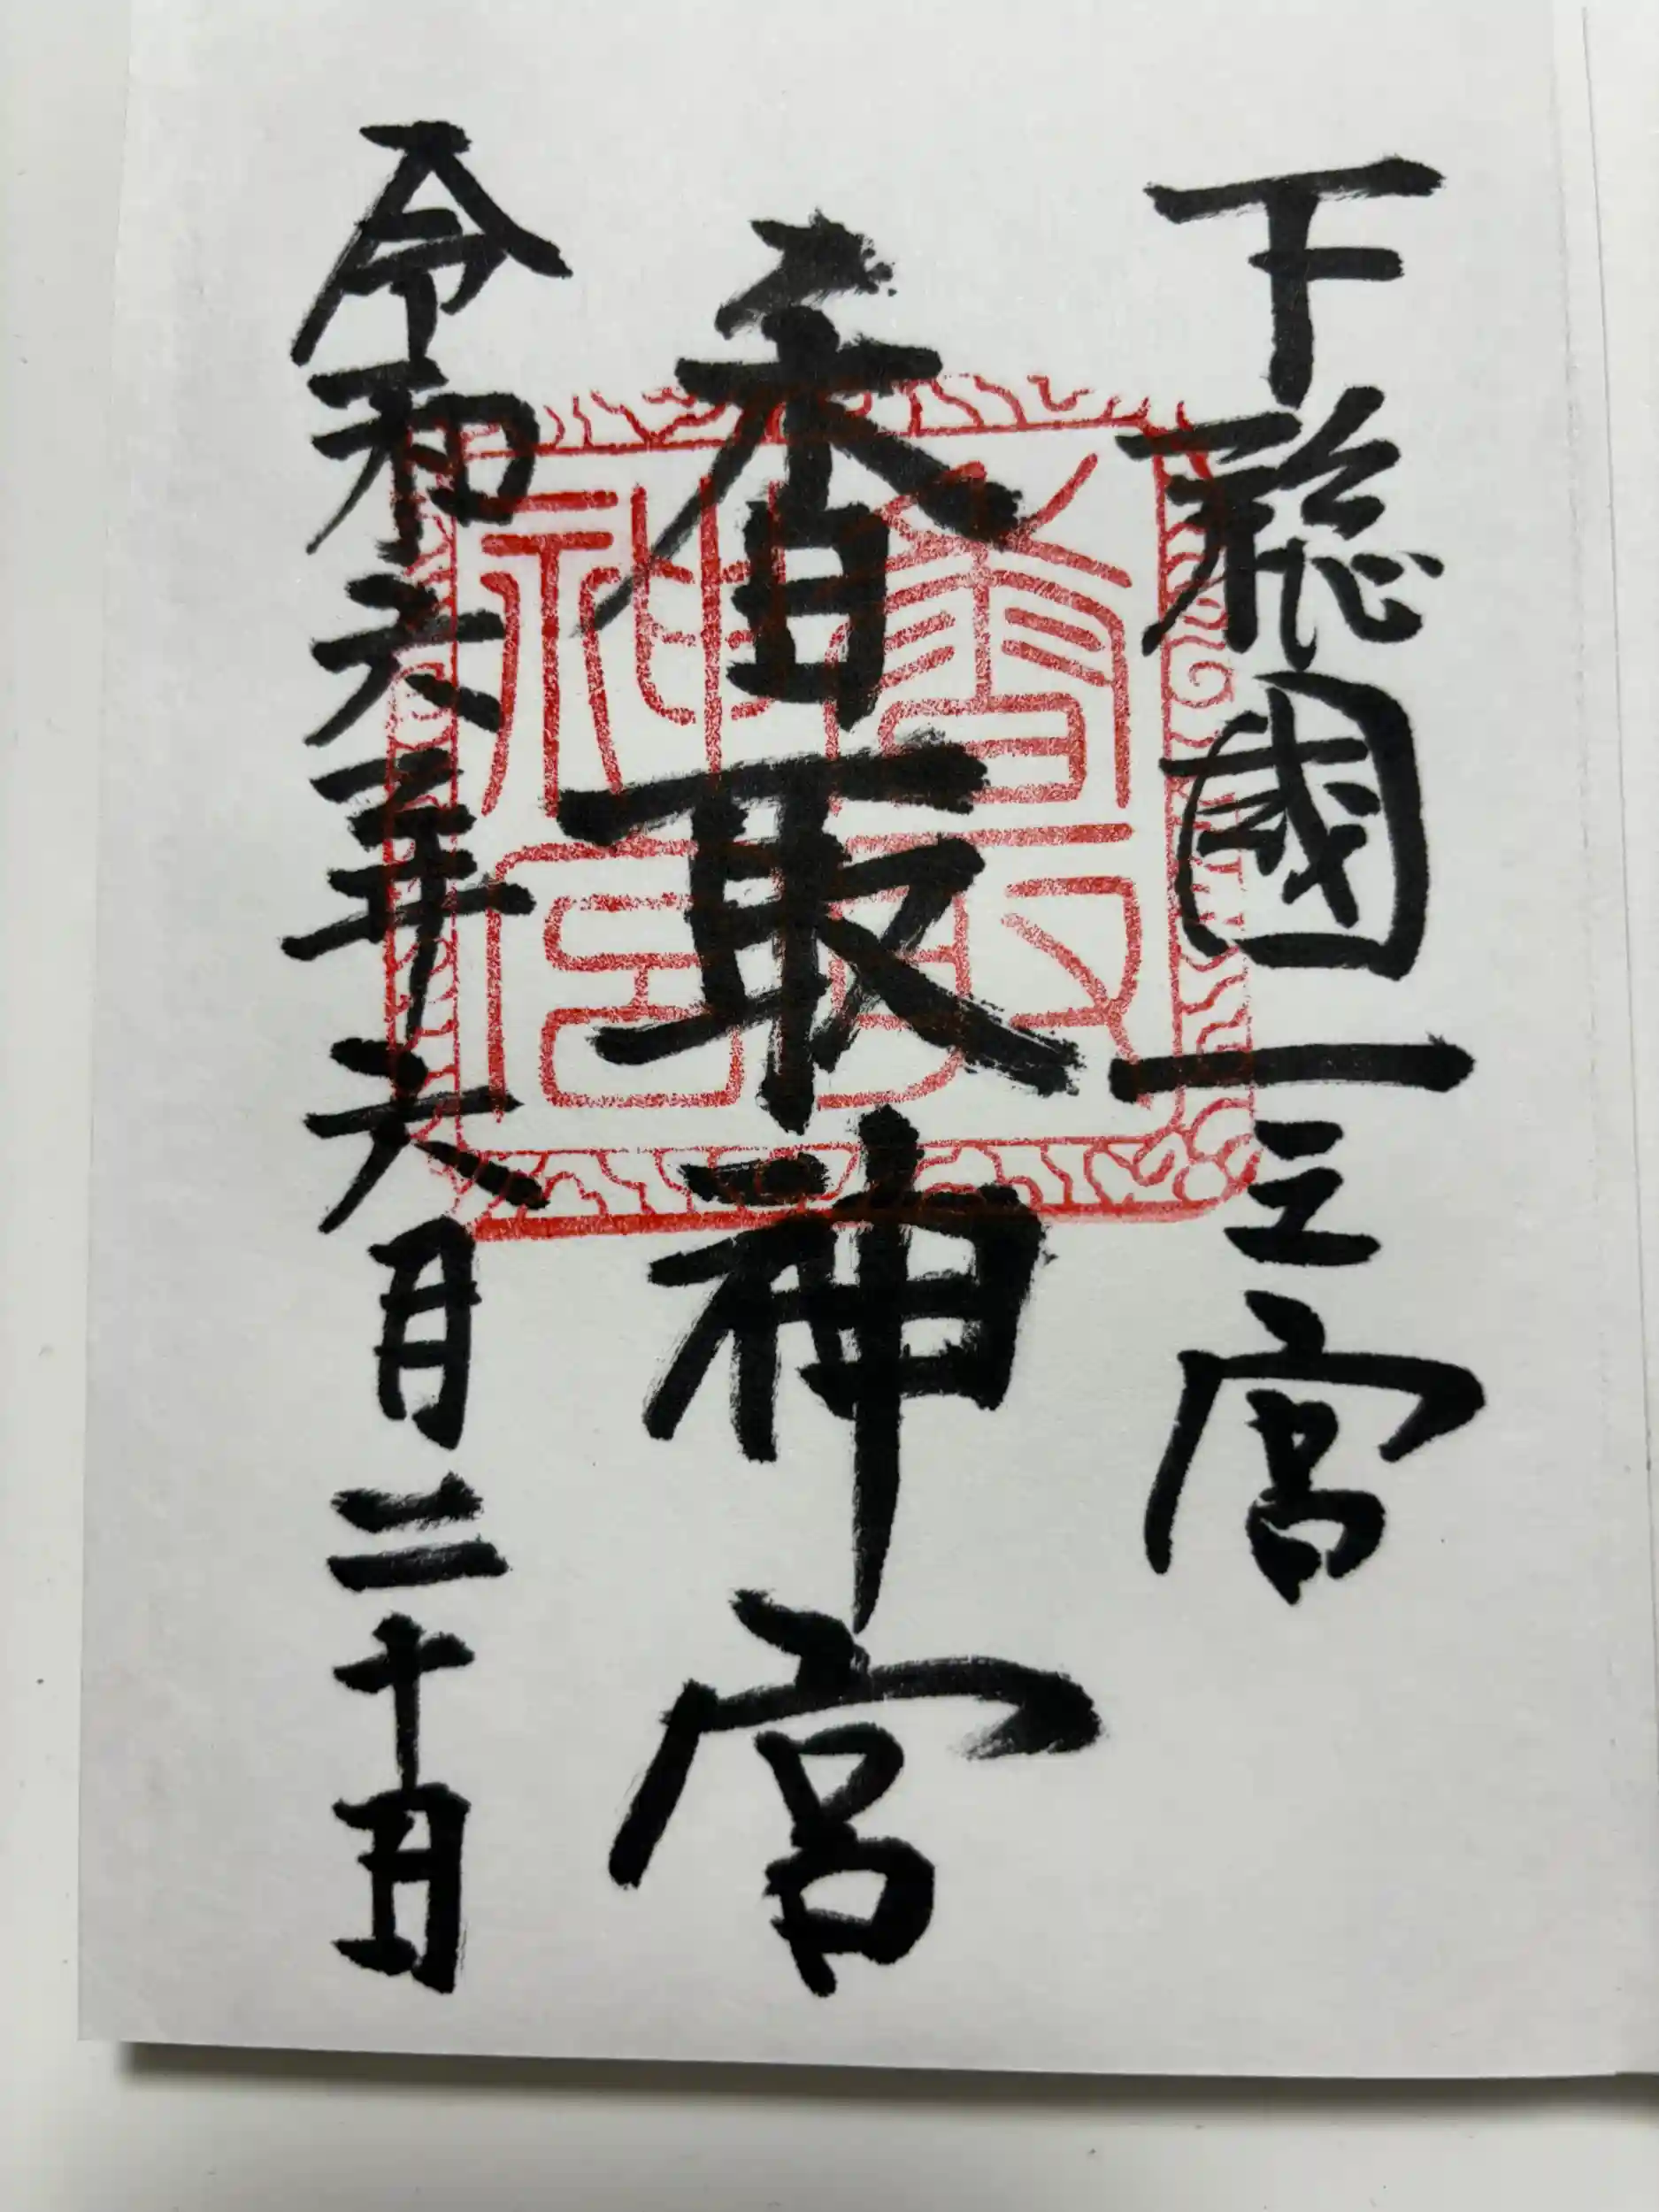 下総國一之宮
香取神宮
令和六年六月二十日
香取神宮